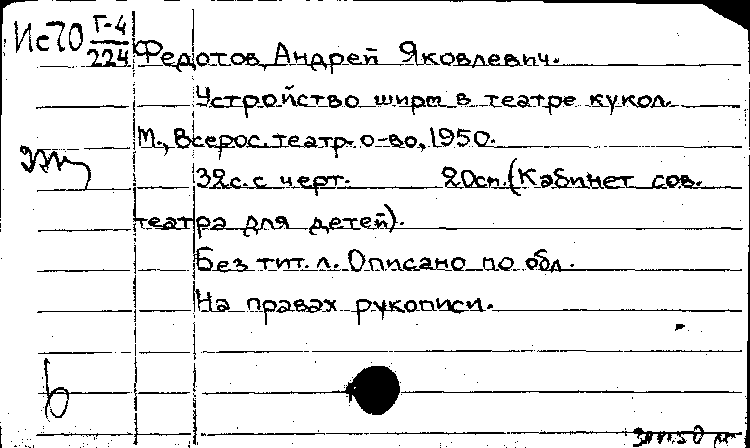 Ис70 Г-4
224
Федотов, Андрей Яковлевич.
Устройство ширм в театре кукол.
М., Всерос. театр. о-во, 1950.
32с. с черт. 20см. (Кабинет сов.
театра для детей).
Без тит. л. Описано по обл.
На правах рукописи.